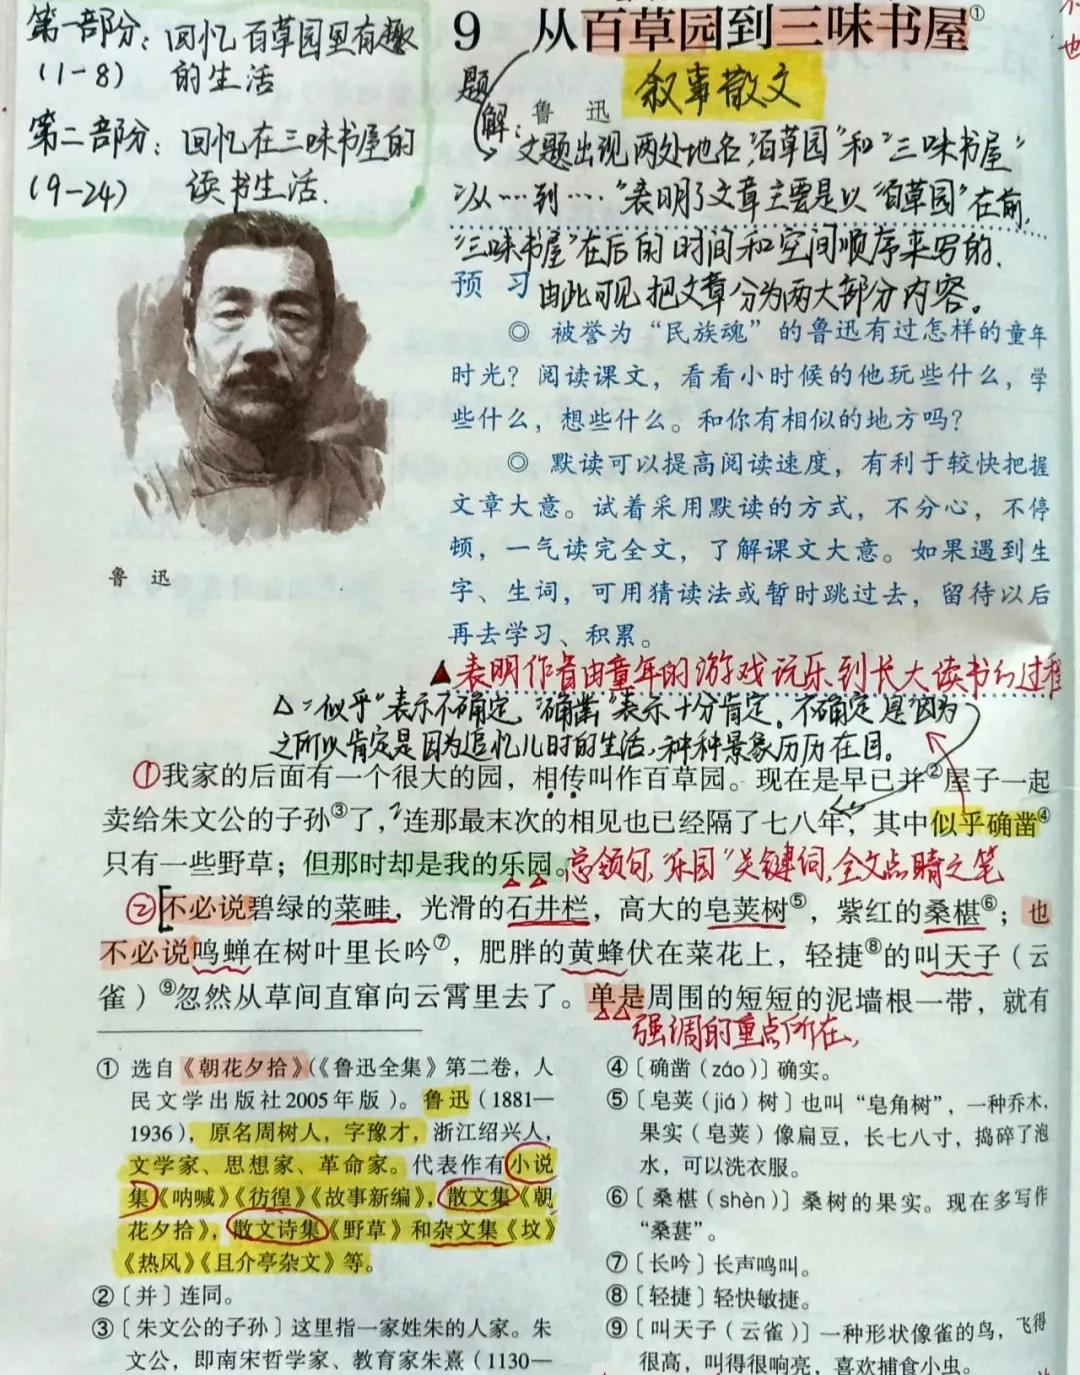 第一部分：回忆百草园里有趣
（1-8） 的生活
第二部分：回忆在三味书屋的
（9-24） 读书生活.
9 从百草园到三味书屋①
题
解：
鲁 迅
叙事散文
文题出现两处地名,"百草园"和"三味书屋"
"从……到……"表明了文章主要是以"百草园"在前,
"三味书屋"在后的时间和空间顺序来写的.
预 习
由此可见把文章分为两大部分内容。
◎ 被誉为“民族魂”的鲁迅有过怎样的童年
时光？阅读课文，看看小时候的他玩些什么，学
些什么，想些什么。和你有相似的地方吗？
◎ 默读可以提高阅读速度，有利于较快把握
文章大意。试着采用默读的方式，不分心，不停
顿，一气读完全文，了解课文大意。如果遇到生
字、生词，可用猜读法或暂时跳过去，留待以后
再去学习、积累。
鲁 迅
▲表明作者由童年的游戏玩乐到长大读书的过程
△："似乎"表示不确定,"确凿"表示十分肯定。不确定是因为
之所以肯定是因为追忆儿时的生活,种种景象历历在目。
①我家的后面有一个很大的园，相传叫作百草园。现在是早已并②屋子一起
卖给朱文公的子孙③了，连那最末次的相见也已经隔了七八年，其中似乎确凿④
只有一些野草；但那时却是我的乐园。总领句,"乐园"关键词,全文点睛之笔
②不必说碧绿的菜畦，光滑的石井栏，高大的皂荚树⑤，紫红的桑椹⑥；也
不必说鸣蝉在树叶里长吟⑦，肥胖的黄蜂伏在菜花上，轻捷⑧的叫天子（云
雀）⑨忽然从草间直窜向云霄里去了。单是周围的短短的泥墙根一带，就有
强调的重点所在,
① 选自《朝花夕拾》(《鲁迅全集》第二卷，人
民文学出版社2005年版）。鲁迅（1881—
1936），原名周树人，字豫才，浙江绍兴人，
文学家、思想家、革命家。代表作有小说
集《呐喊》《彷徨》《故事新编》，散文集《朝
花夕拾》，散文诗集《野草》和杂文集《坟》
《热风》《且介亭杂文》等。
②〔并〕连同。
③〔朱文公的子孙〕这里指一家姓朱的人家。朱
文公，即南宋哲学家、教育家朱熹（1130—
④〔确凿（záo）〕确实。
⑤〔皂荚（jiá）树〕也叫“皂角树”，一种乔木，
果实（皂荚）像扁豆，长七八寸，捣碎了泡
水，可以洗衣服。
⑥〔桑椹（shèn）〕桑树的果实。现在多写作
“桑葚”。
⑦〔长吟〕长声鸣叫。
⑧〔轻捷〕轻快敏捷。
⑨〔叫天子（云雀）〕一种形状像雀的鸟，飞得
很高，叫得很响亮，喜欢捕食小虫。